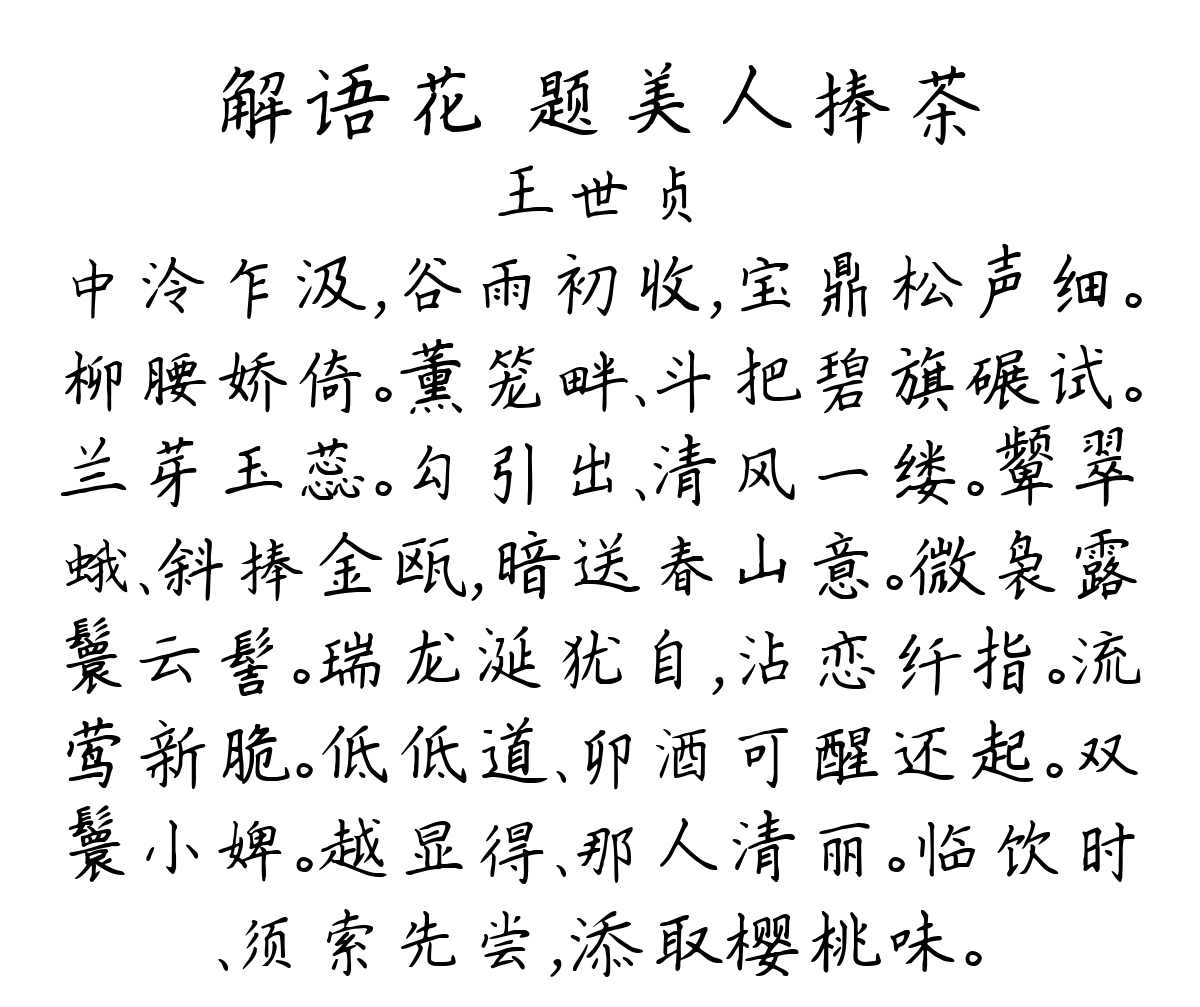 解语花 题美人捧茶
王世贞
中泠乍汲,谷雨初收,宝鼎松声细。
柳腰娇倚。薰笼畔、斗把碧旗碾试。
兰芽玉蕊。勾引出、清风一缕。颦翠
蛾、斜捧金瓯,暗送春山意。微袅露
鬟云髻。瑞龙涎犹自,沾恋纤指。流
莺新脆。低低道、卯酒可醒还起。双
鬟小婢。越显得、那人清丽。临饮时
、须索先尝,添取樱桃味。